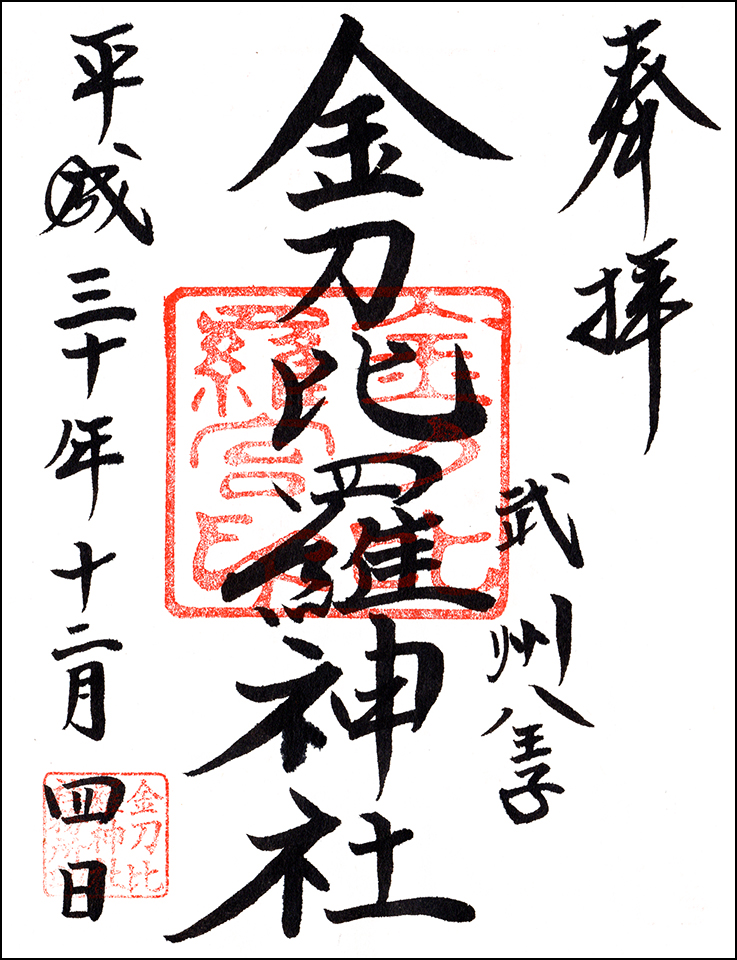 奉拝
武州八王子
金刀比羅神社
平成三十年十二月四日
金刀比羅宮印
金刀比